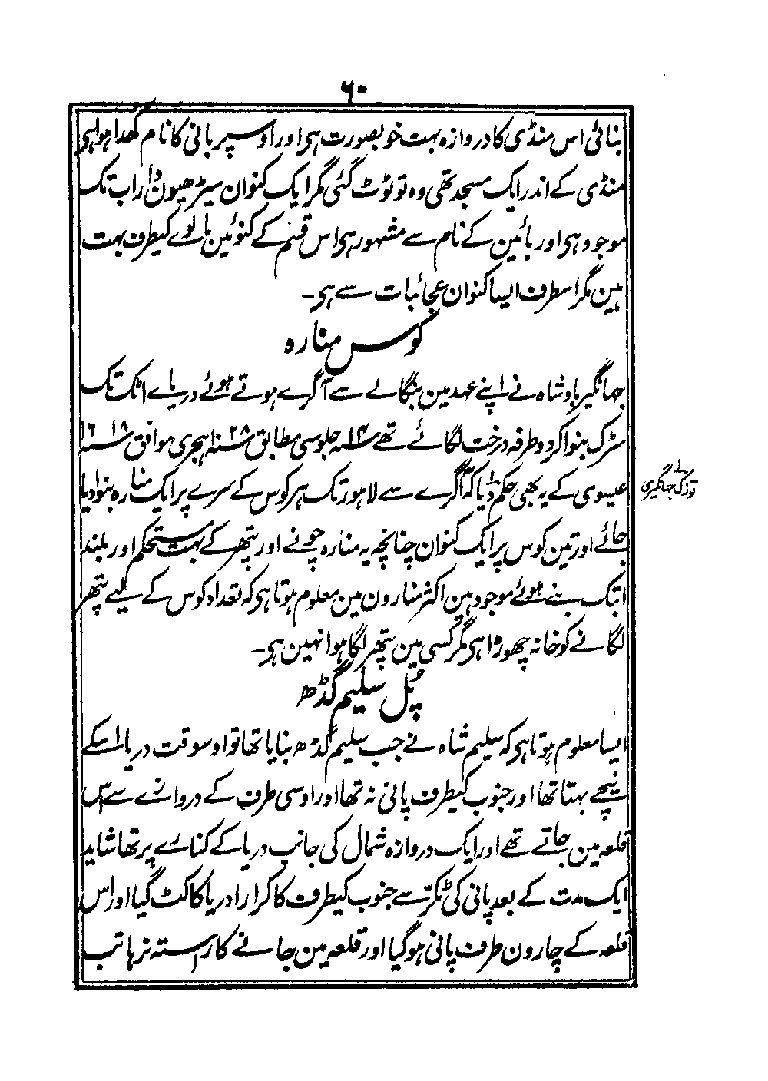 ۶۰
بنائی اس منڈی کا دروازہ بہت خوبصورت ہی اور اوسپر بانی کا نام کھدا ہوا ہی
منڈی کے اندر ایک مسجد تھی وہ تو ٹوٹ گئی مگر ایک کنوان سیڑھیون دار اب تک
موجود ہی اور بائین کے نام سے مشہور ہی اس قسم کے کنوئین بالوے کیطرف بہت
ہین مگر اسطرف ایسا کنوان عجائبات سے ہی۔
کوس منارہ
جہانگیر بادشاہ نے اپنے عہد مین بنگالے سے آگرے ہوتے ہوئے دریاے اٹک تک
سڑک بنوا کر دو طرفہ درخت لگائے تھے سنہ ۱۴ جلوسی مطابق سنہ ۱۰۲۸ ہجری موافق سنہ ۱۶۱۸
عیسوی کے یہ بھی حکم دیا کہ آگرے سے لاہور تک ہر کوس کے سرے پر ایک منارہ بنوا دیا
تزک جہانگیری
جائے اور تین کوس پر ایک کنوان چنانچہ یہ منارہ چونے اور پتھر کے بہت مستحکم اور بلند
ابتک بنے ہوئے موجود ہین اکثر منارون مین معلوم ہوتا ہی کہ تعداد کوس کے لیے پتھر
لگانے کو خانہ چھوڑا ہی مگر کسی مین پتھر لگا ہوا نہین ہی۔
پل سلیم گڈھ
ایسا معلوم ہوتا ہی کہ سلیم شاہ نے جب سلیم گڈھ بنایا تھا تو اوسوقت دریا اسکے
نیچے بہتا تھا اور جنوب کیطرف پانی نہ تھا اور اوسی طرف کے دروازے سے اس
قلعہ مین جاتے تھے اور ایک دروازہ شمال کی جانب دریا کے کنارے پر تھا شاید
ایک مدت کے بعد پانی کی ٹکر سے جنوب کیطرف کا کرارا دریا کا کٹ گیا اور اس
قلعہ کے چارون طرف پانی ہو گیا اور قلعہ مین جانے کا رستہ نرہا تب